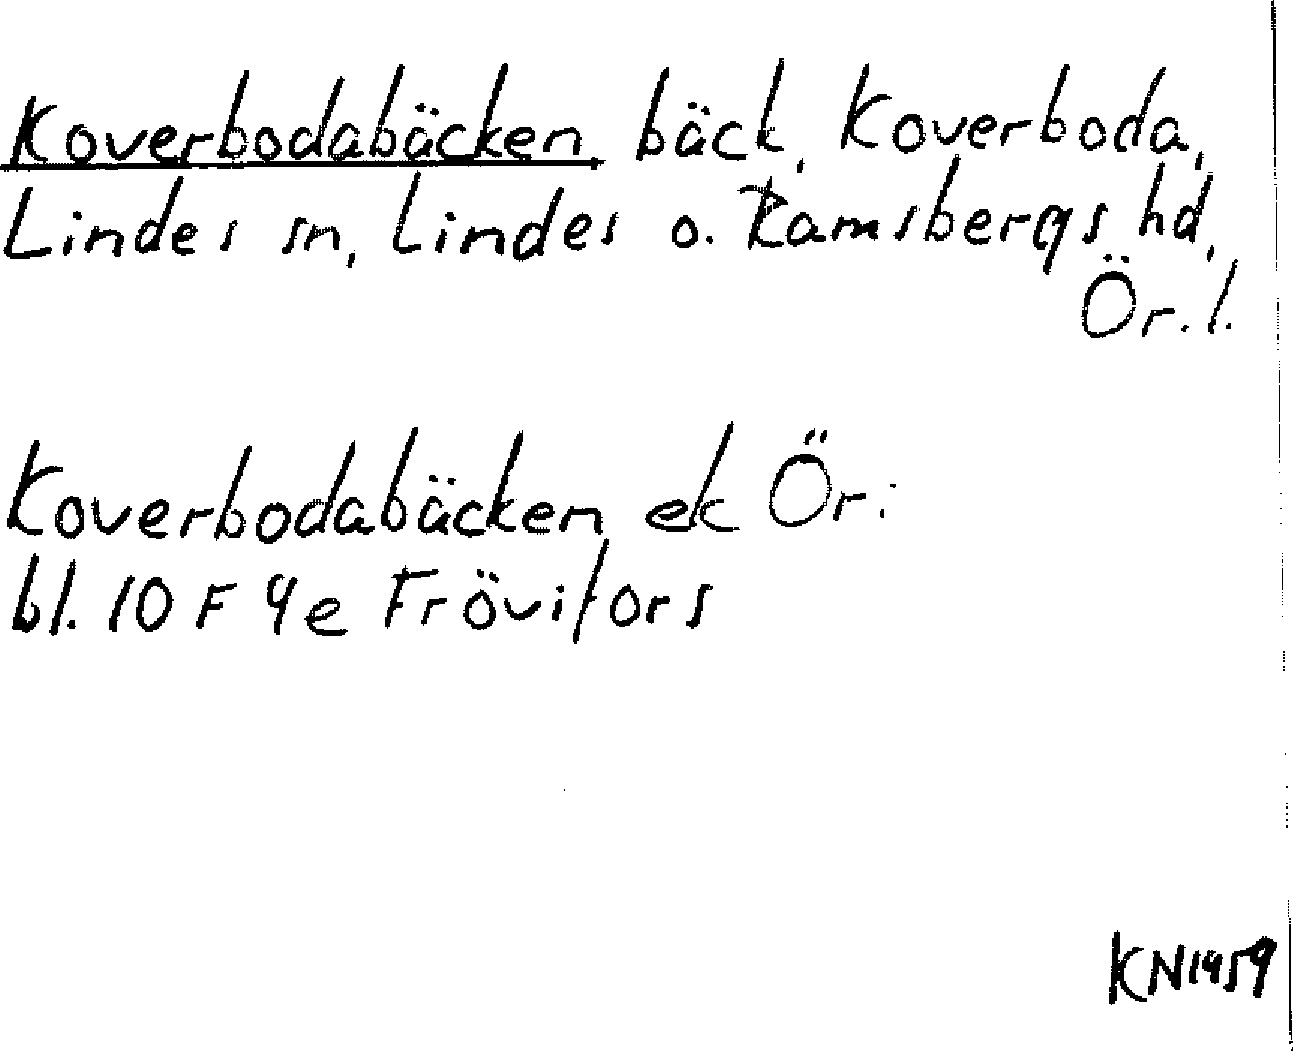 Koverbodabäcken, bäck, Koverboda,
Lindes sn, Lindes o. Ramsbergs hd,
Ör. l.
Koverbodabäcken ek Ör:
bl. 10 F 9e Frövifors
KN 1959